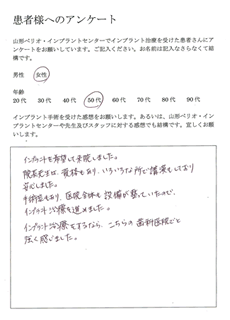 患者様へのアンケート
山形ペリオ・インプラントセンターでインプラント治療を受けた患者さんにア
ンケートをお願いしています。ご記入ください。お名前は記入なさらなくて結
構です。
男性 女性
年齢
20代 30代 40代 50代 60代 70代 80代 90代
インプラント手術を受けた感想をお願いします。あるいは、山形ペリオ・イン
プラントセンターや先生及びスタッフに対する感想でも結構です。宜しくお願
いします。
インプラントを希望して来院しました。
院長先生は、資格もあり、いろいろな所で講演もしており
安心しました。
手術室もあり、医院全体も設備が整っていたので、
インプラント治療を進めました。
インプラント治療をするなら、こちらの歯科医院でと
強く感じました。